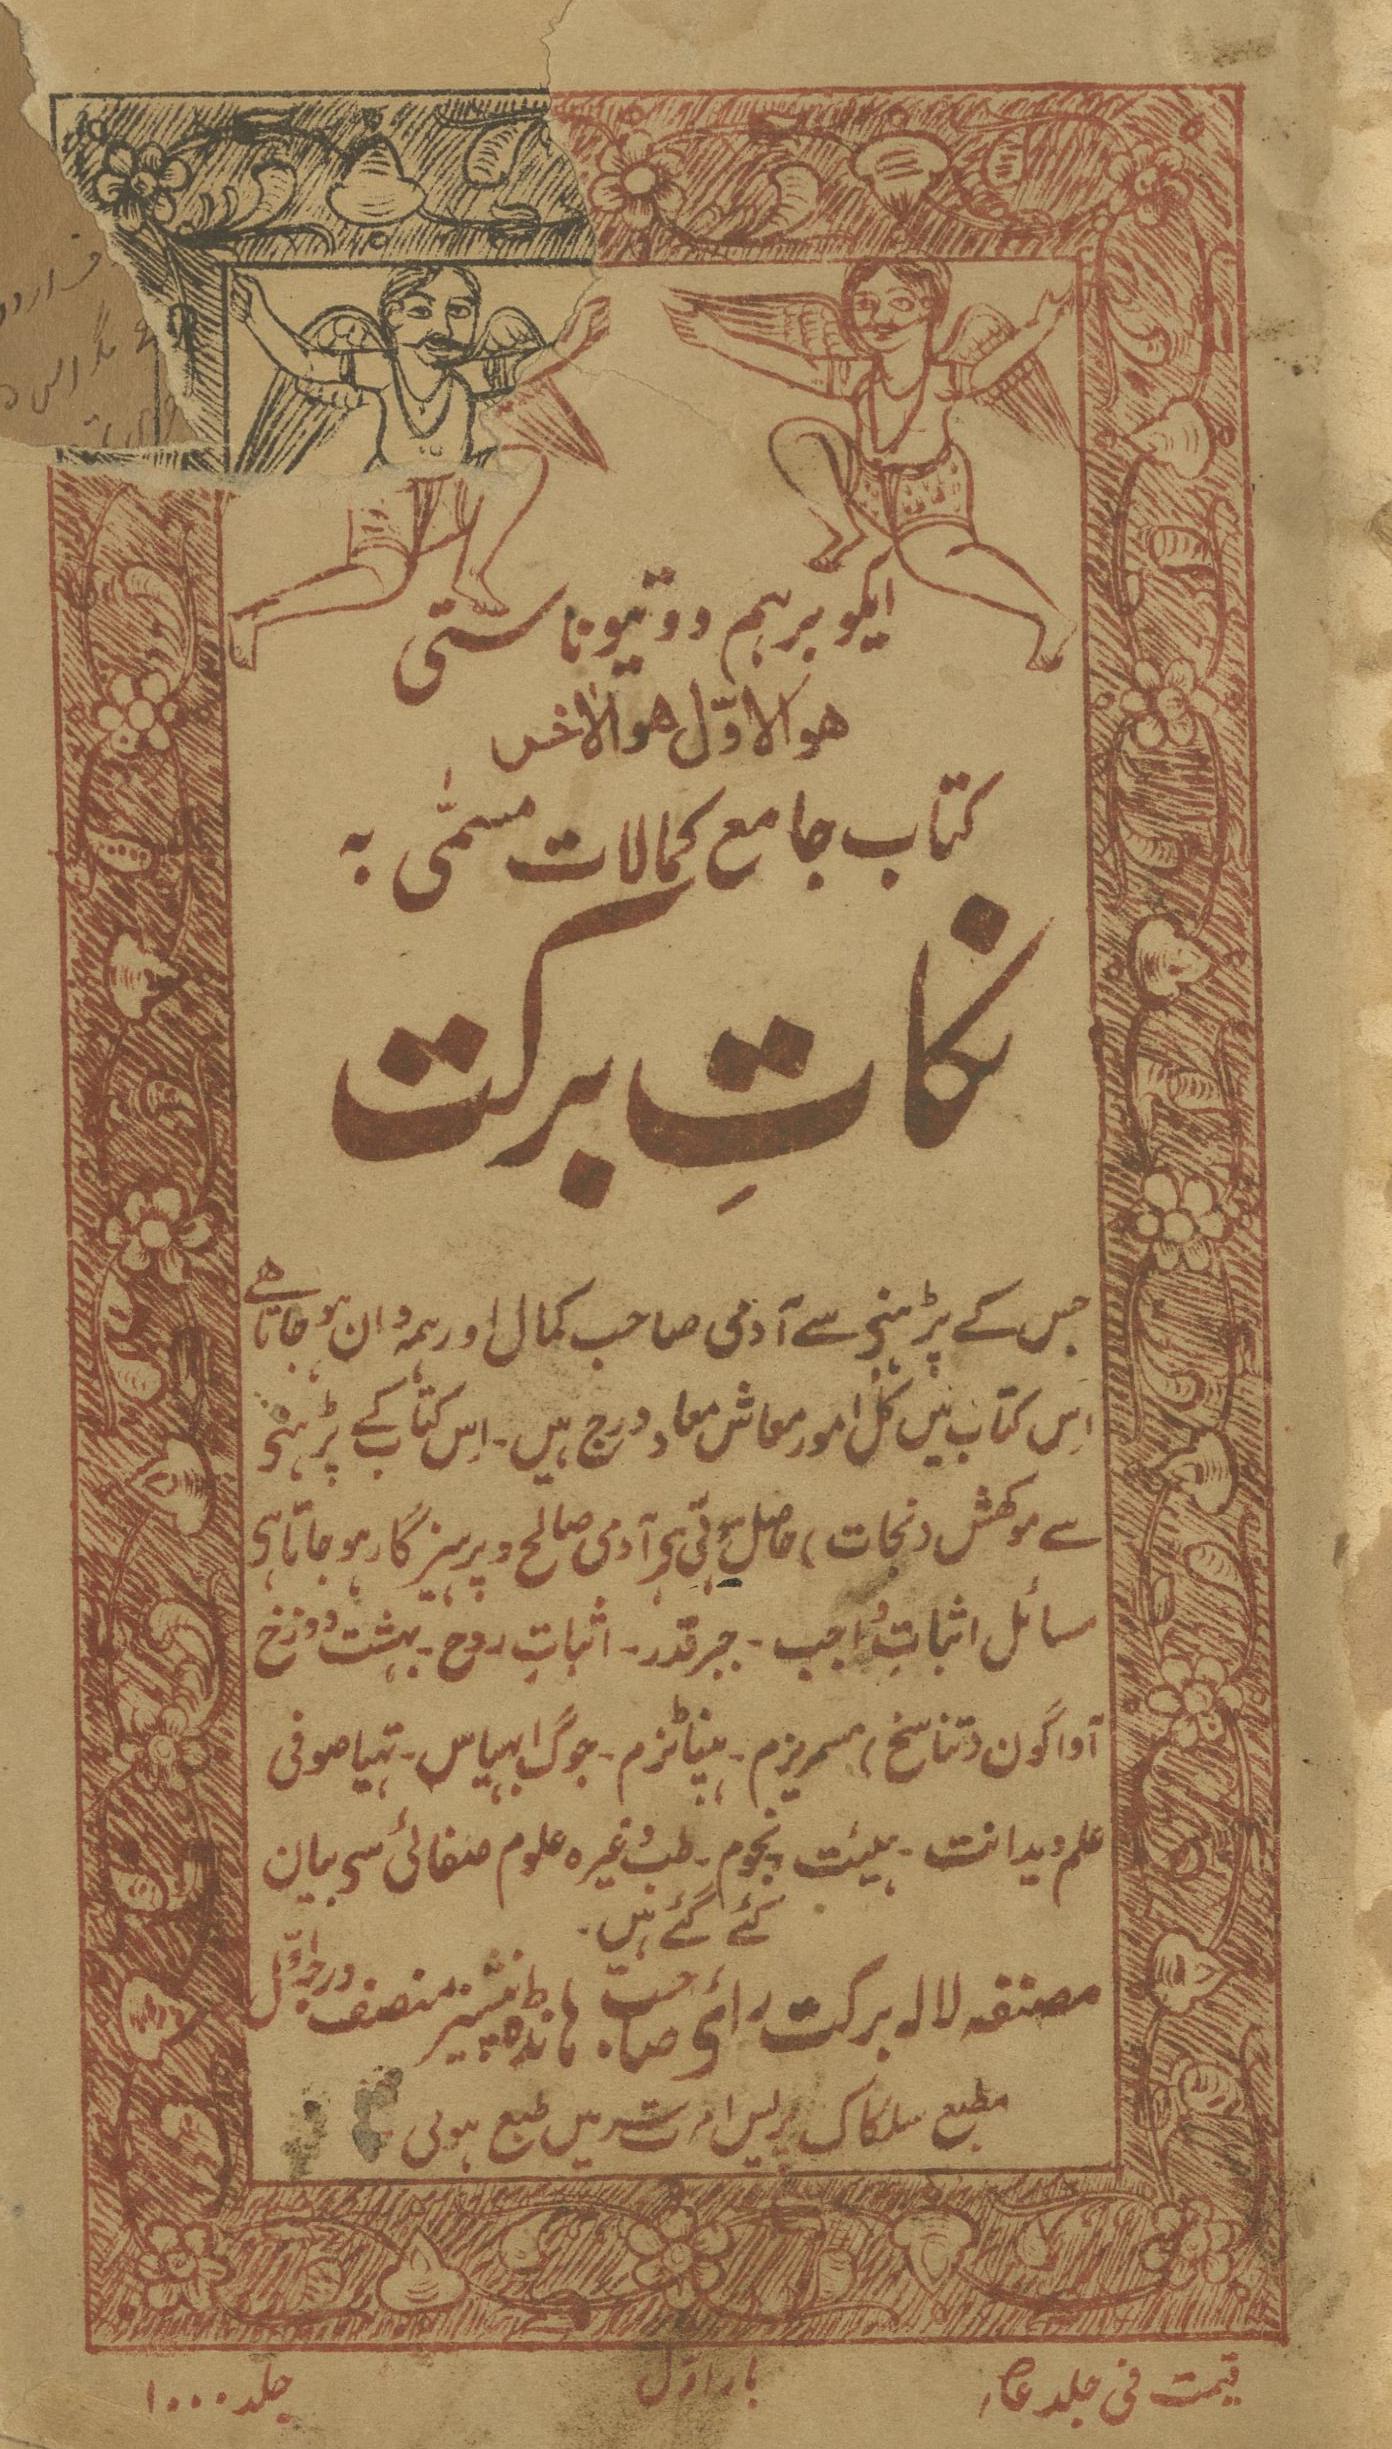 ایکو برہم دوتیو ناستی
هوالاوّل هوالاٰخر
کتاب جامع کمالات مسمّٰی بہ
نکاتِ برکت
جس کے پڑہنے سے آدمی صاحب کمال اور ہمہ دان ہو جاتا ھے
اِس کتاب میں کُل امور معاش معاد درج ہیں ۔ اِس کتاب کے پڑہنے
سے موکھش (نجات) حاصل ہوتی ہی آدمی صالح و پرہیزگار ہو جاتا ہی
مسائل اثباتِ واجب ۔ جبر قدر ۔ اثباتِ روح ۔ بہشت دوزخ
آواگون (تناسخ) مسمریزم ۔ ہپناٹزم ۔ جوگ ابہیاس ۔ تہیاصوفی
علم ویدانت ۔ ہیئت نجوم ۔ طب وغیرہ علوم صفائی سی بیان
کئے گئے ہیں ۔
مصنفہ لالہ برکت رائی صاحب ہانڈہ پنشنر منصف درجہ اوّل
مطبع سلکاک پریس امرتسر میں طبع ہوئی
قیمت فی جلد
بار اوّل
جلد ۱۰۰۰